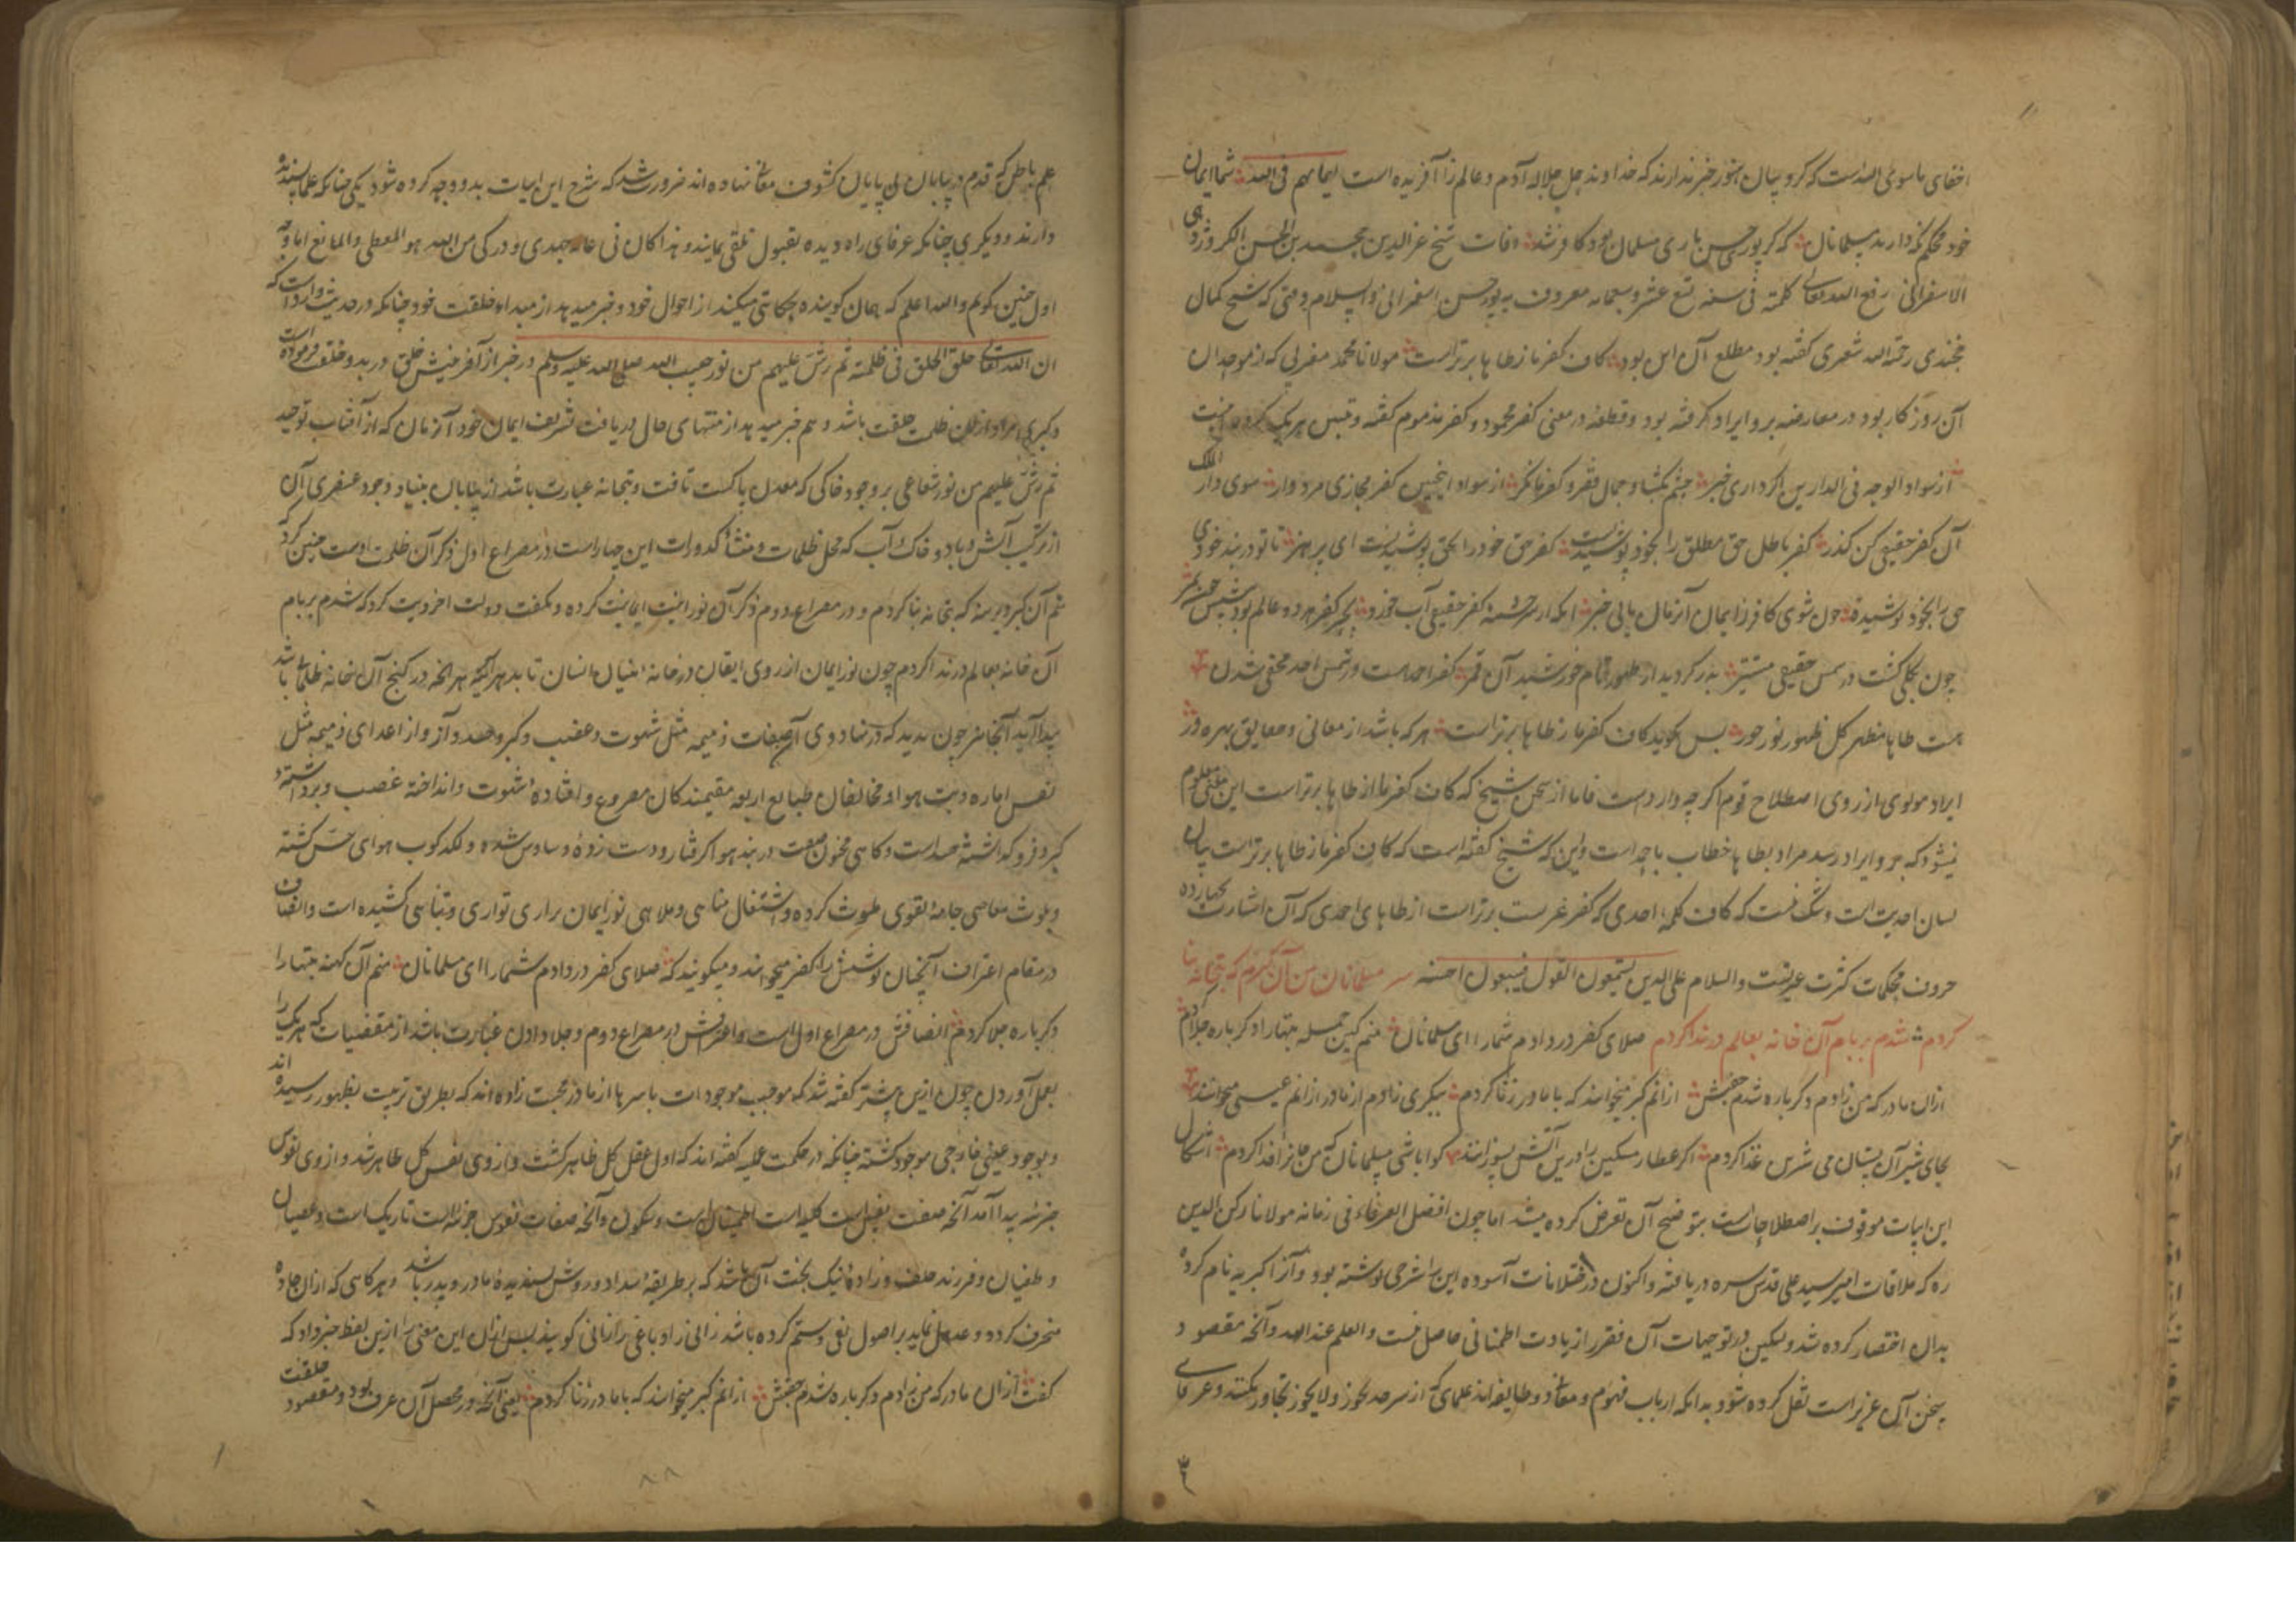 اخفای ماسوی الله است که کروبیان هنوز خبر ندارند که خداوند جل جلاله آدم و عالم را آفریده است ایمانهم فی الله شما ایمان
خود محکم نگه دارید مسلمانان که گر پور حسن باری مسلمان بود کافر شد وفات شیخ عزالدین بن الحسن
الاسفراینی رفع الله تعالی کلمته فی سنه تسع عشر و سبعمایه معروف به پور حسن اسفراینی و السلام وقتی که شیخ کمال
خجندی رحمة الله شعری گفته بود مطلع آن این بود کاف کفر ما ز طاها برتر است مولانا محمد مغربی که از موحدان
آن روزگار بود در معارضه برو ایراد گرفته بود و قطعه در معنی کفر محمود و کفر مذموم گفته و هر یک
از سواد الوجه فی الدارین اگر داری خبر چشم بگشا و جمال فقر و کفر ما نگر از سواد اینچنین کفر مجازی مردوار سوی دار الملک
آن کفر حقیقی کن گذر کفر باطل حق مطلق را بخود پوشیدنست کفر حق خود را بحق پوشیدنست ای پر هنر تا تو در بند خودی
حق را بخود پوشیده چون شوی کافر ز ایمان آنزمان یابی خبر آنکه از سرچشمه کفر حقیقی آب خورد بحر کفر هر دو عالم بود پیشش
چون بکلی گشت در شمس حقیقی مستتر بدر گردید از ظهور تام خورشید آن قمر کفر احمد است در شمس احد مخفی شدن
هست طاها مظهر کل ظهور نور خور پس نگوید کاف کفر ما ز طاها برتر است هر که باشد از معانی و حقایق بهره ور
ایراد مولوی از روی اصطلاح قوم اگرچه وارد است فاما از سخن شیخ که کاف کفر ما از طاها برتر است این معنی معلوم
نمیشود که برو ایراد رسد مراد بطاها خطاب باحمد است و این که شیخ گفته است که کاف کفر ما ز طاها برتر است بیان
لسان احدیت است و شک نیست که کاف کلمه احدی که کفر غیریست برتر است از طاهای احمدی که آن اشارت
حروف محکمات کثرت غیریتست والسلام علی الذین یستمعون القول فیتبعون احسنه مسلمانان من آن گبرم که بتخانه بنا
کردم شدم بر بام آن خانه بعالم در ندا کردم صلای کفر در دادم شما را ای مسلمانان منم کین جمله بتها را دگرباره جلا کردم
ازان مادر که من زادم دگرباره شدم جفتش ازانم گبر میخوانند که با مادر زنا کردم ببکری زادم از مادر ازانم عیسی میخوانند
بجای شیر آن پستان می شرین غذا کردم اگر عطار مسکین را درین آتش بسوزانند گوا باشی مسلمانان که من جان را فدا کردم
این ابیات موقوف بر اصطلاحاتست بتوضیح آن تعرض کرده میشد اما چون افضل العرفاء فی زمانه مولانا رکن الدین
ره که ملاقات امیر سید علی قدس سره دریافته و اکنون در ختلانات آسوده این را شرحی نوشته بود و آنرا اکبریه نام کرده
بدان اختصار کرده شد ولیکن در توجیهات آن فقیر را زیادت اطمنانی حاصل نیست و العلم عند الله و آنچه مقصود
سخن آن عزیز است نقل کرده شود بدانکه ارباب فهوم و معانی دو طایفه اند علمای که از سرحد یجوز و لا یجوز تجاوز نکنند و عرفای
علم باطن که قدم در بیابان بی پایان کشوف معانی نهاده اند ضرورت شد که شرح این ابیات بدو وجه کرده شود یکی چنانکه علما پسندیده
دارند و دیگری چنانکه عرفای راه دیده بقبول تلقی نمایند و هذا کان فی غایه جهدی و درکی من الله هو المعطی و المانع اما وجه
اول چنین گویم و الله اعلم که همان گوینده حکایتی میکند از احوال خود و خبر میدهد از مبداء خلقت خود چنانکه در حدیث وارد است که
ان الله تعالی خلق الخلق فی ظلمة ثم رش علیهم من نوره حبیب الله صلی الله علیه وسلم در خبر از آفرینش خلق در بدو خلقت فرموده است
و گبری مراد از ظلمت خلقت باشد و هم خبر میدهد از منتهای حال دریافت تشریف ایمان خود آنزمان که از آفتاب توحید
ثم رش علیهم من نوره شعاعی بر وجود خاکی که معدن پاکست تافت و بتخانه عبارت باشد از بیابان بنیاد وجود عنصری آن
از ترکیب آتش و باد و خاک و آب که محل ظلمات و منشأ کدورات این چهار است در مصراع اول ذکر آن ظلمت اوست چنین کرد
منم آن گبر دیرینه که بتخانه بنا کردم و در مصراع دوم ذکر آن نورانیت ایمانیت کرده و بگفت دولت اخرویت کرد که شدم بر بام
آن خانه بعالم در ندا کردم چون نور ایمان از روی ایقان در خانه بنیان انسان تابد هر آینه هر آنچه در کنج آن خانه ظلمانی باشد
پیدا آید آنجا هم چون بدید که در نهاد وی آن صفات ذمیمه مثل شهوت و غضب و کبر و حسد و آز و از اعدای ذمیمه مثل
نفس اماره و بت هوا و مخالفان طبایع اربعه مقیمند کان مصروع و افتاده شهوت و انداخته غضب و برداشته
کبر و فرو گذاشته حسد است و گاهی در بند هوا گرفتار و دست زده وساوس شده و لگدکوب هوای حس گشته
و بلوث معاصی جامه تقوی ملوث کرده و اشتغال مناهی و ملاهی نور ایمان را روی تواری و تناهی کشیده است و انصاف
در مقام اعتراف آنچنان پوشش را کفر میخوانند و میگویند که صلای کفر در دادم شما را ای مسلمانان منم آن کهنه بتها را
دگرباره جلا کردم انصافش در مصراع اول است و اعترافش در مصراع دوم و جلا دادن عبارت باشد از مقتضیات که هر یک را
بعمل آوردن چون ازین پیشتر گفته شد که موجب موجودات باسرها از مادر محبت زاده اند که بطریق تربیت بظهور رسیده اند
و بوجود عینی خارجی موجود گشته چنانکه در حکمت علیه گفته اند که اول عقل کل ظاهر گشت و از وی نفس کل ظاهر شد و از وی نفوس
جزئیه پیدا آمد آنچه صفت نفس کلیه است اطمینان است و سکون و آنچه صفات نفوس جزئیه است تاریک است و عصیان
و طغیان و فرزند خلف و زاده نیک بخت آن باشد که بر طریقه اسداد و روش پسندیده مادر و پدر باشد و هرگاهی که ازان جاده
منحرف گردد و عدول نماید بر اصول بغی و ستم کرده باشد زانی زاد و باغی را زانی گویند پس ازان این معنی را ازین لفظ خبر داد که
گفت ازان مادر که من زادم دگرباره شدم جفتش ازانم گبر میخوانند که با مادر زنا کردم یعنی آنچه در محصل آن عرف بود و مقصود خلقت